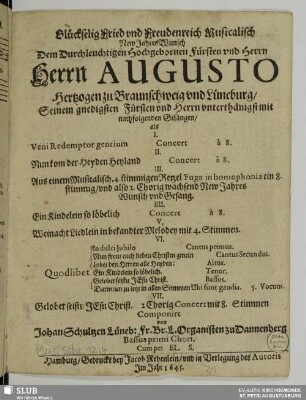 Glückselig Fried vnd Freudenreich Musicalisch
New Jahres Wunsch
Dem Durchleuchtigen Hochgebornen Fürsten vnd Herrn
Herrn AUGUSTO
Hertzogen zu Braunschweig vnd Lüneburg/
Seinem gnedigsten Fürsten vnd Herrn vnterthänigst mit
nachfolgenden Gesängen/
als
I.
Veni Redemptor gentium Concert à 8.
II.
Nun kom der Heyden Heyland Concert à 8.
III.
Aus einem Musicalisch. 4. stimmigen Retzel Fuga in homophonia ein 8.
stimmig/ vnd also 2. Chorig wachsend New Jahres
Wunsch vnd Gesang.
IIII.
Ein Kindelein so löbelich Concert à 8.
V.
Weinacht Liedlein in bekandter Melodey mit 4. Stimmen.
VI.
Quodlibet
In dulci Jubilo Cantus primus.
Nun frewt euch lieben Christen gmein Cantus Secundus.
Lobet den Herren alle Heyden: Altus.
Ein Kindelein so löbelich. Tenor.
Gelobet seistu JEsu Christ. Bassus.
5. Vocum.
VII.
Gelobet seistu JEsu Christ. 2 Chorig Concert mit 8. Stimmen
Componirt
von
Johan Schultzen Lüneb: Fr: Br: L. Organisten zu Dannenberg
Bassus primi Chori.
Cum per El. S.
Hamburg/ Gedruckt bey Jacob Rebenlein/ vnd in Verlegung des Autoris
Im Jahr 1645.
SLUB
Wir führen Wissen.
EV.-LUTH. KIRCHGEMEINDE
ST. PETRI AUGUSTUSBURG